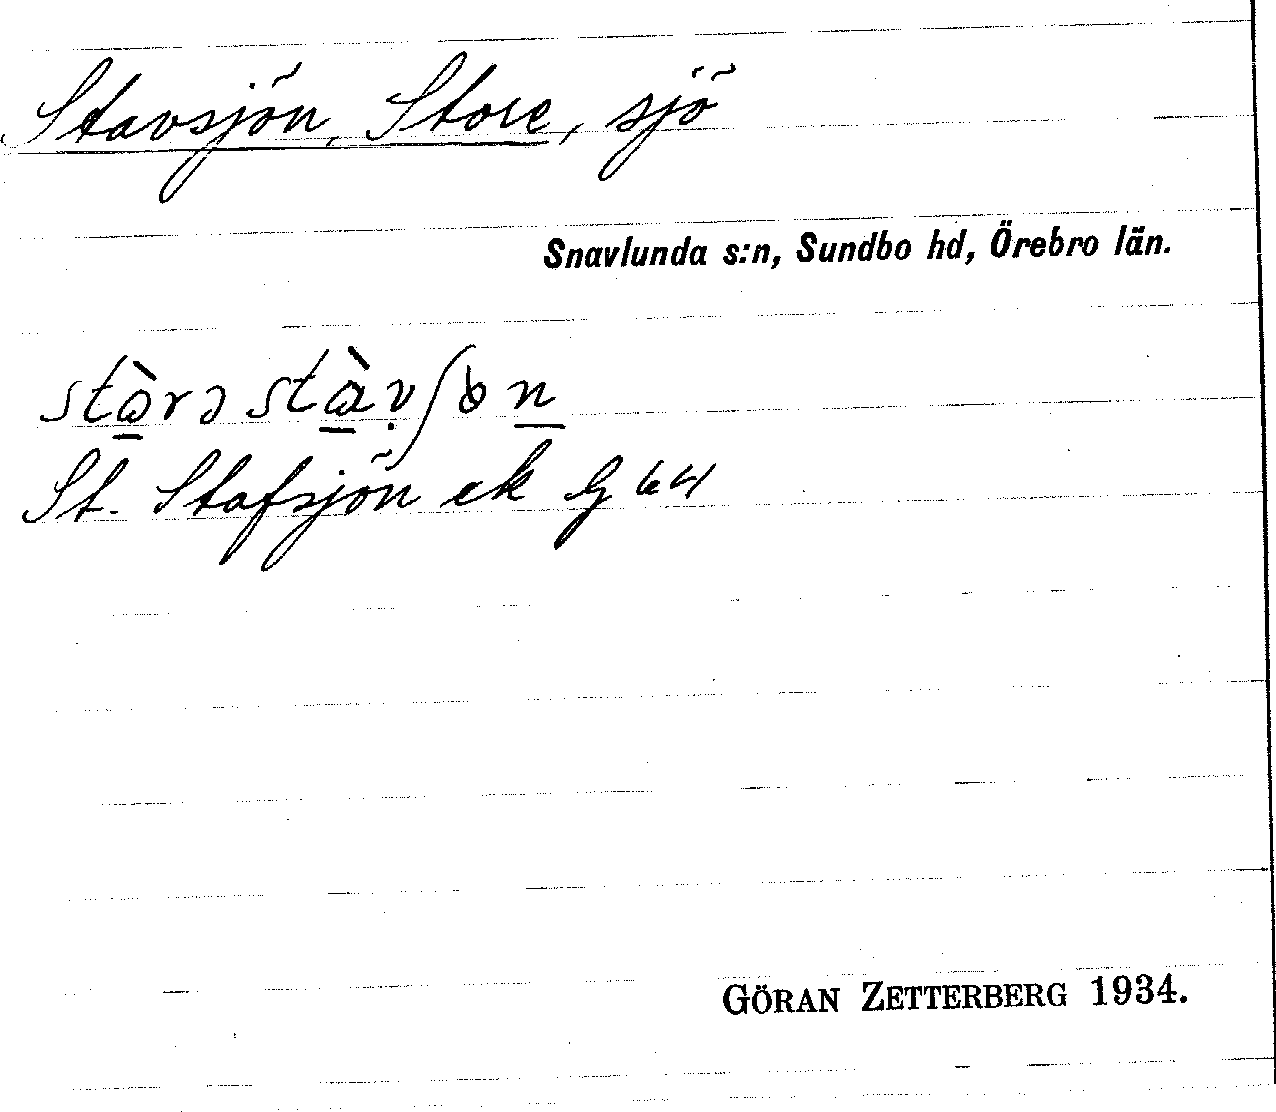 Stavsjön, Store, sjö
Snavlunda s:n, Sundbo hd, Örebro län.
St. Stafsjön ek
GÖRAN ZETTERBERG 1934.